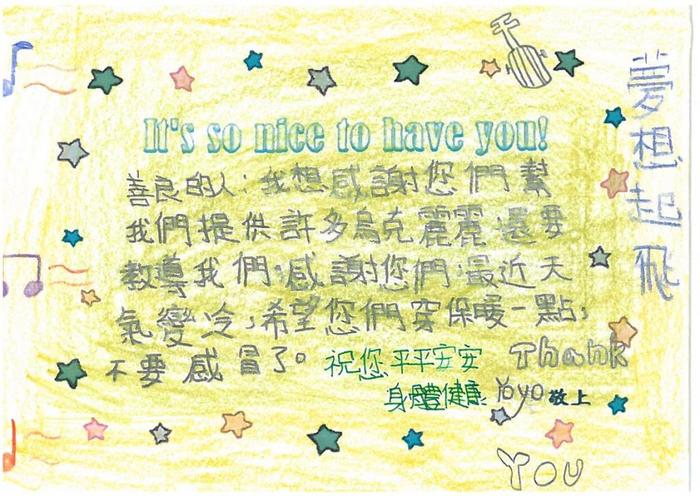 It's so nice to have you!
善良的人:我想感謝您們幫
我們提供許多烏克麗麗,還要
教導我們,感謝您們,最近天
氣變冷,希望您們穿保暖一點,
不要感冒了。
祝您平平安安
身體健康
Yoyo敬上
Thank
You
夢想起飛